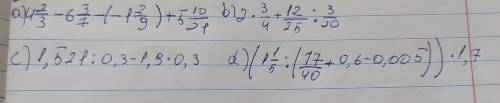 a) 4 2/3 - 6 3/7 - (-1 2/9) + 5 10/21 b) 2 · 3/4 + 12/25 : 3/20
c) 1,521 : 0,3 - 1,9 · 0,3 d) (1 1/5 : (17/40 + 0,6 - 0,005)) · 1,7